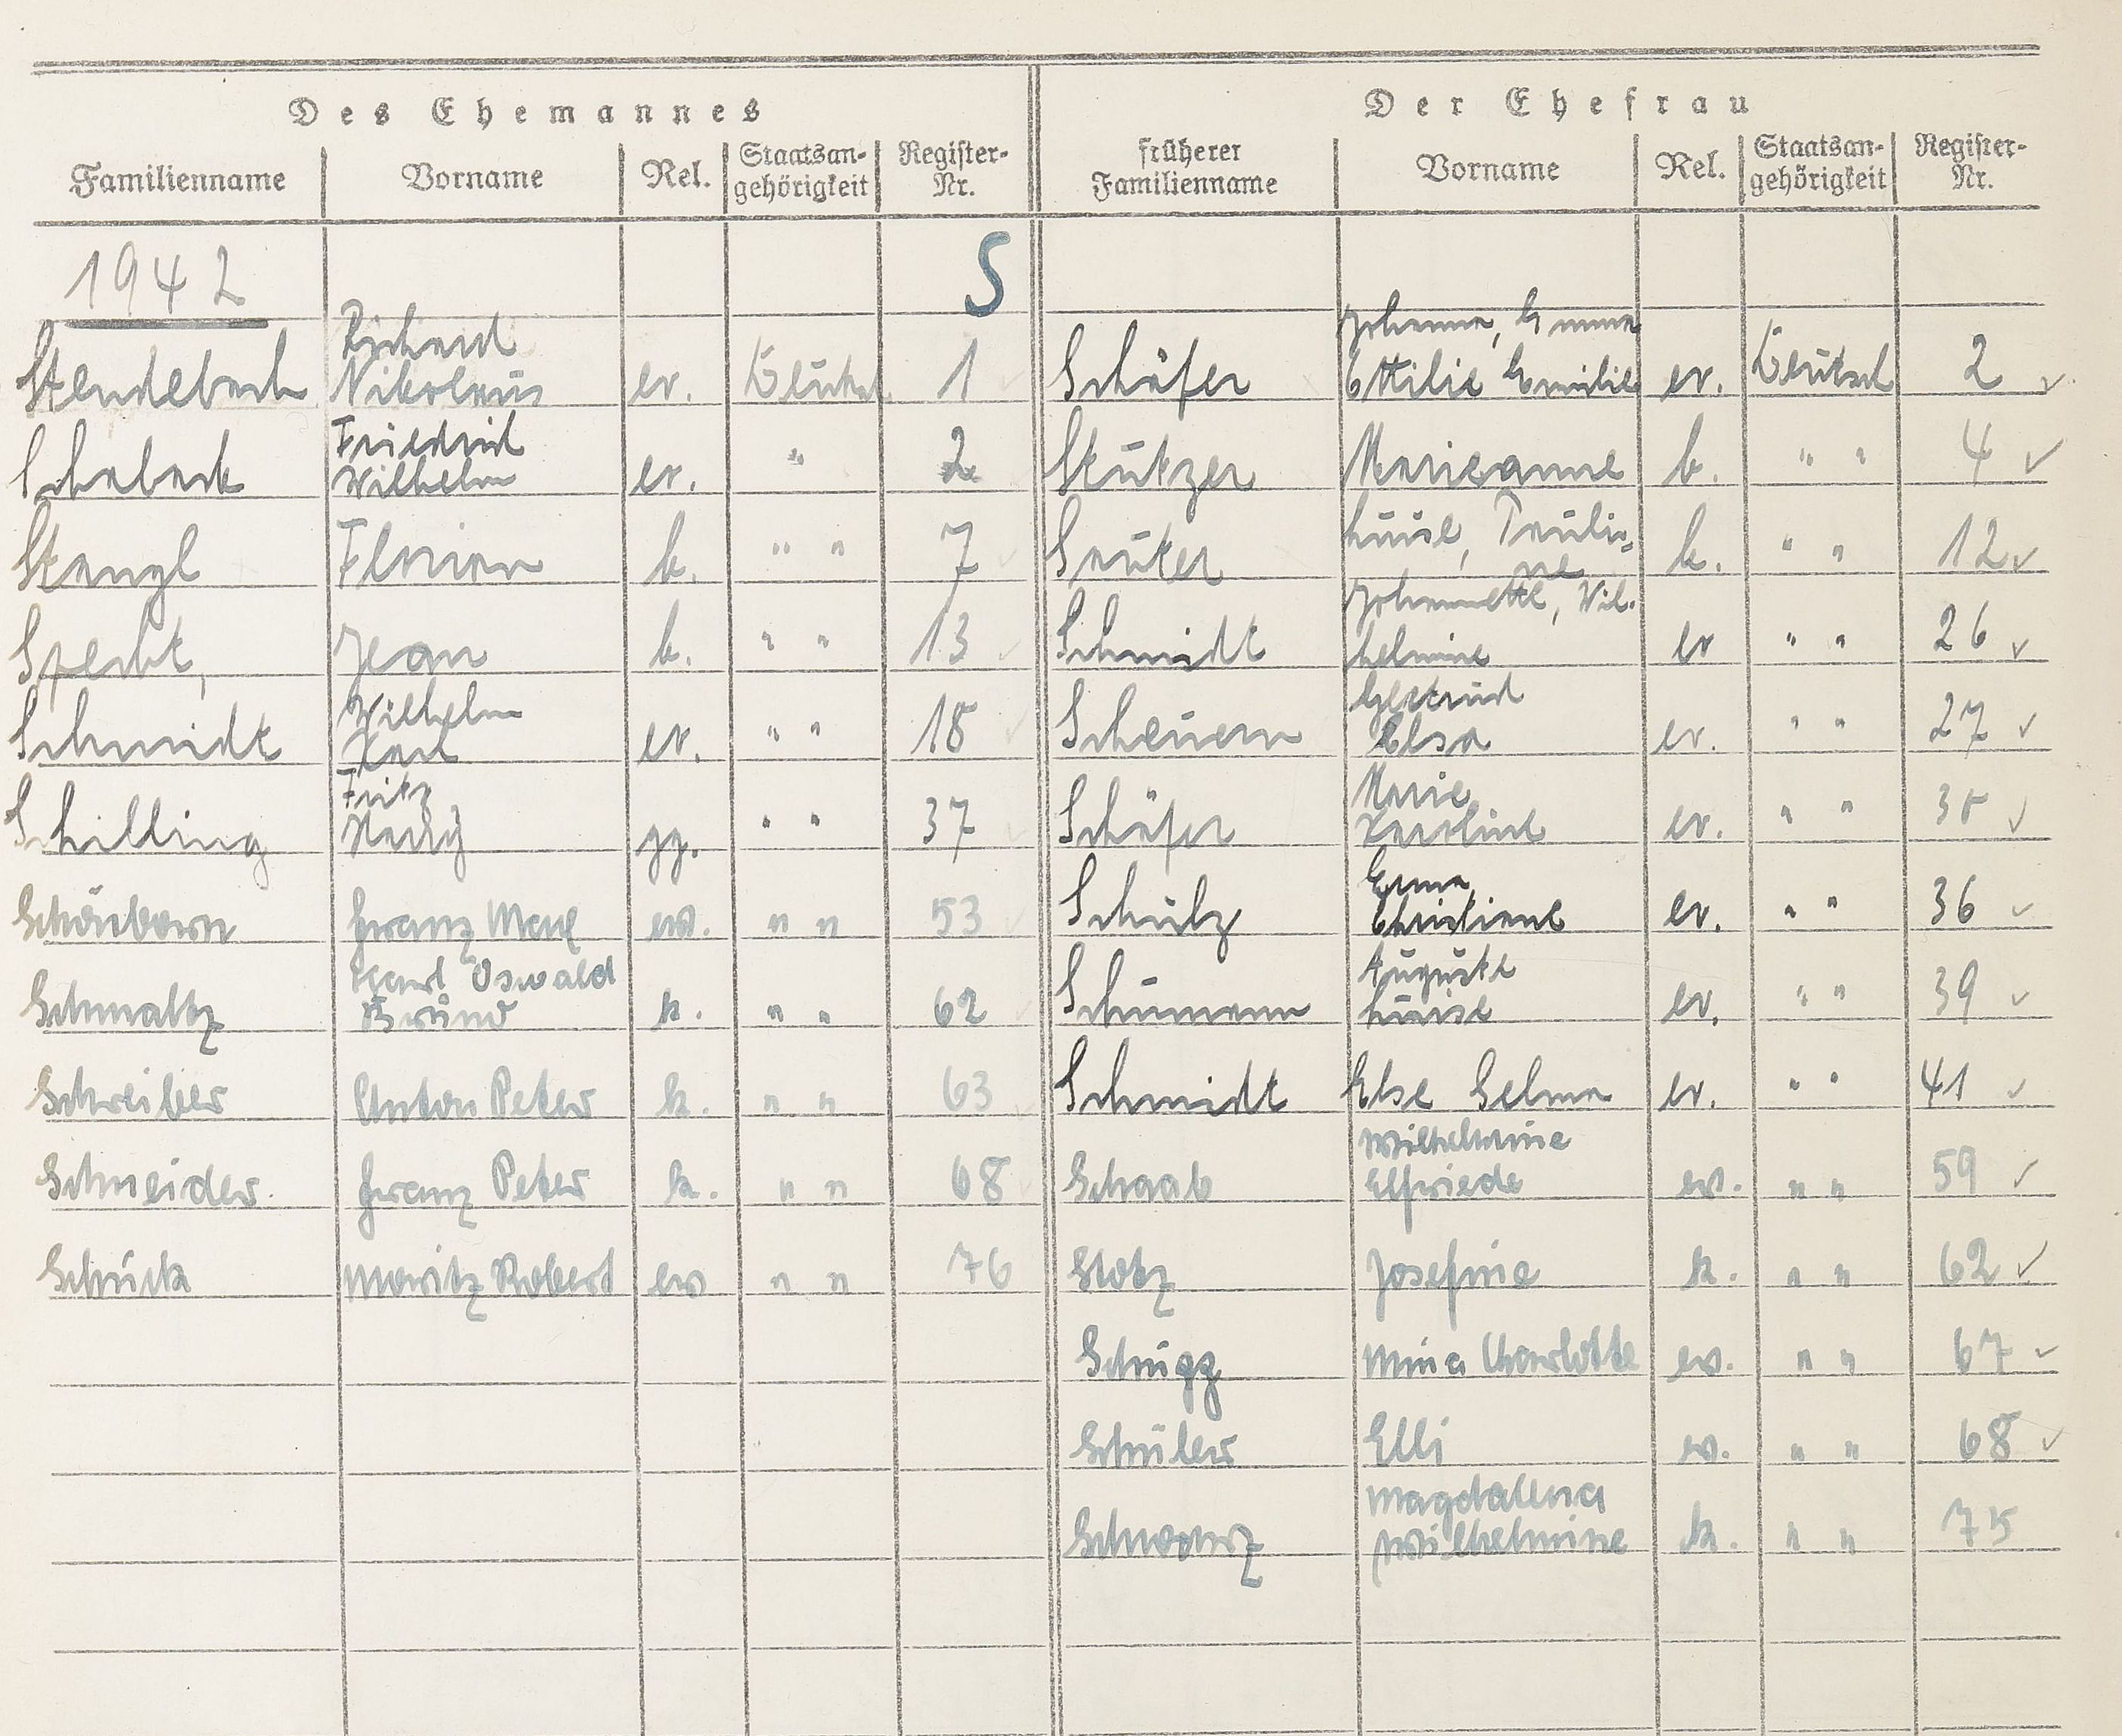 Des Ehemannes Der Ehefrau
Familienname Vorname Rel. Staatsan-gehörigkeit Register-Nr. früherer Familienname Vorname Rel. Staatsan-gehörigkeit Register-Nr.
1942 S
Stendebach Richard Nikolaus ev. Deutsch 1 Schäfer Johanna, Emma Ottilie Emilie ev. Deutsch 2 ✓
Schabeck Friedrich Wilhelm ev. " 2 Stützer Marieanne k. " " 4 ✓
Stengl Florian k. " " 7 Sauter Luise, Pauli-ne k. " " 12 ✓
Specht, Jean k. " " 13 Schmidt Johannette, Wil-helmine ev " " 26 ✓
Schmidt Wilhelm Karl ev. " " 18 Scheuern Gertrud Elsa ev. " " 27 ✓
Schilling Fritz gg. " " 37 Schäfer Marie Karoline ev. " " ✓
Schönborn Franz Max ev. " " 53 Schulz Erna Christiane ev. " " 36 ✓
Schmaltz Karl Oswald Bruno k. " " 62 Schumann Auguste Luise ev. " " 39 ✓
Schreiber Anton Peter k. " " 63 Schmidt Else Selma ev. " " 41 ✓
Schneider Franz Peter k. " " 68 Schaab Wilhelmine Elfriede ev. " " 59 ✓
Schück Moritz Robert ev " " 76 Stotz Josefine k. " " 62 ✓
Schugg Mina Charlotte ev. " " 67 ✓
Schüler Elli ev. " " 68 ✓
Schwarz Magdalena Wilhelmine k. " " 75